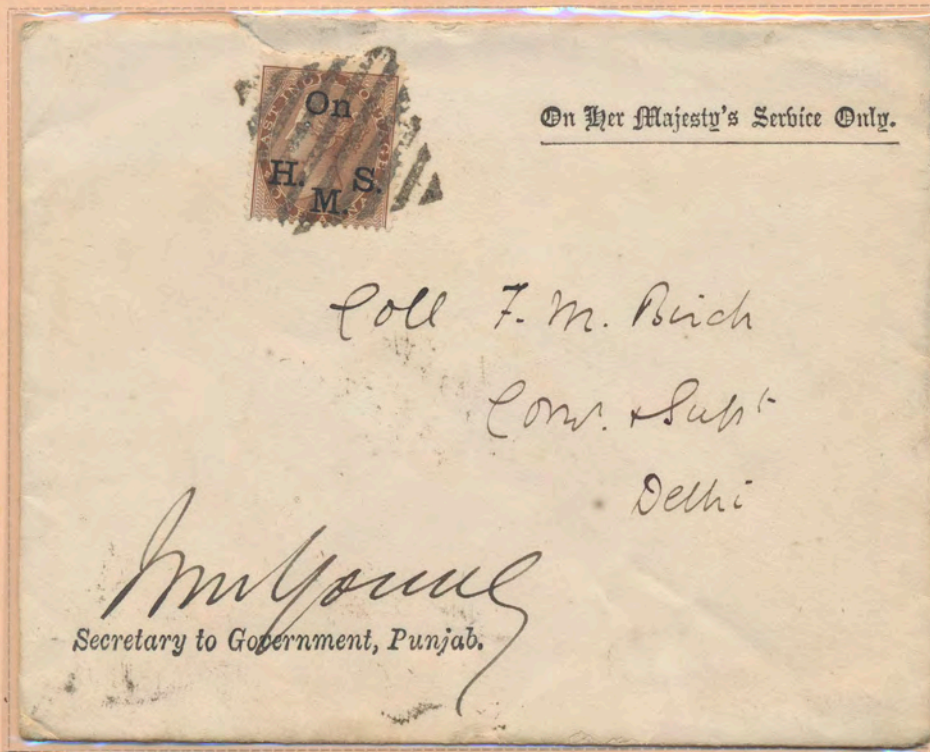 On
H. S.
M.
On Her Majesty's Service Only.
Coll F. M. Birch
Delhi
Secretary to Government, Punjab.